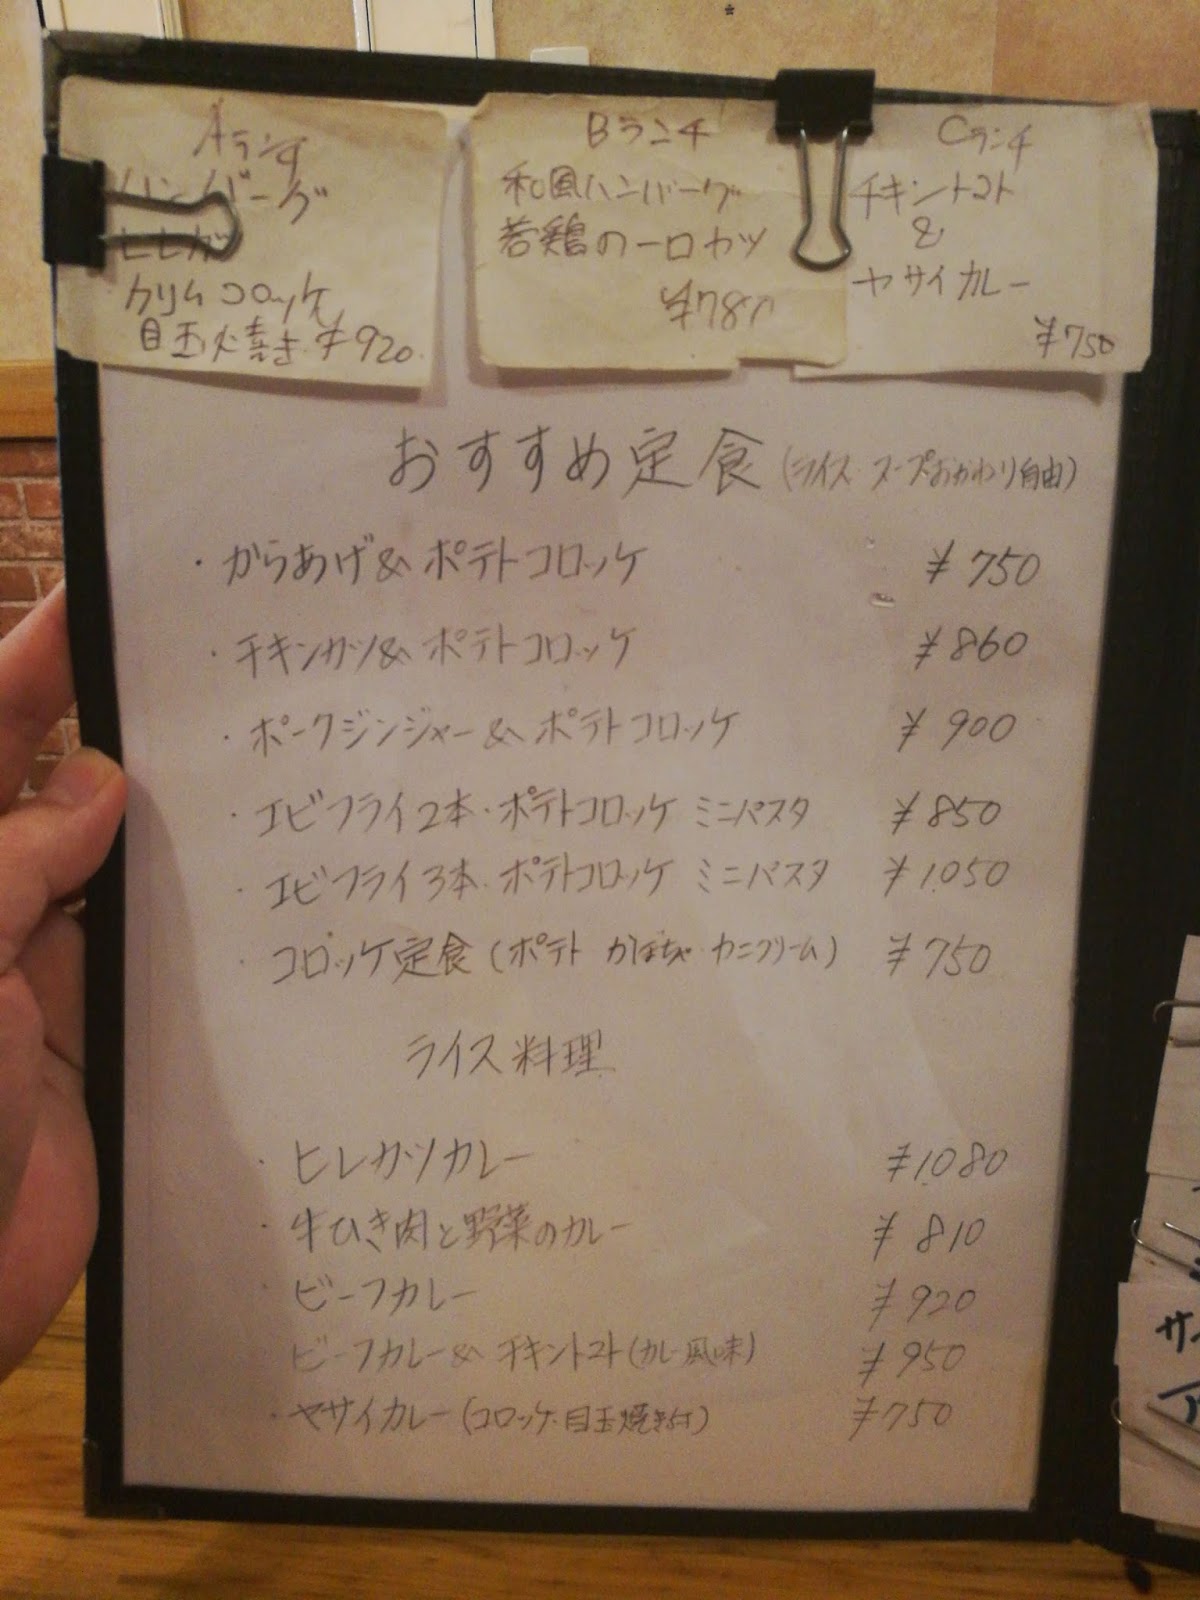 Aランチ
ハンバーグ
ヒレカ
クリームコロッケ
目玉焼き ¥920
Bランチ
和風ハンバーグ
若鶏の一口カツ
Cランチ
チキントマト
&
ヤサイカレー
¥750
おすすめ定食(ライス スープおかわり自由)
・からあげ&ポテトコロッケ ¥750
・チキンカツ&ポテトコロッケ ¥860
・ポークジンジャー&ポテトコロッケ ¥900
・エビフライ2本・ポテトコロッケ ミニパスタ ¥850
・エビフライ3本・ポテトコロッケ ミニパスタ ¥1050
・コロッケ定食(ポテト かぼちゃ カニクリーム) ¥750
ライス料理
・ヒレカツカレー ¥1080
・牛ひき肉と野菜のカレー ¥810
・ビーフカレー ¥920
・ビーフカレー&チキントマト(カレー風味) ¥950
・ヤサイカレー(コロッケ・目玉焼き付) ¥750